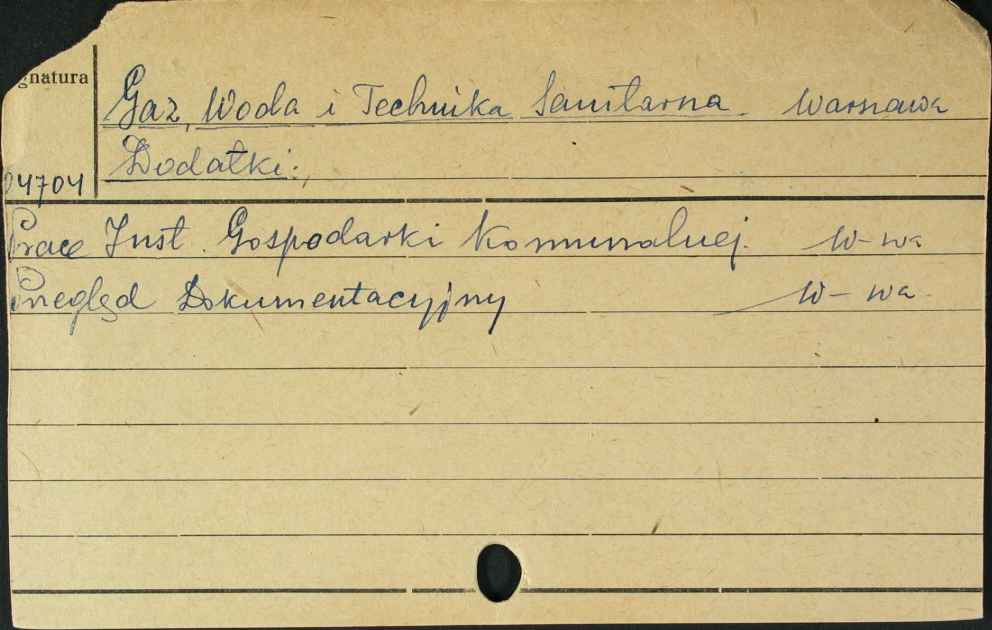 gnatura
Gaz, Woda i Technika Sanitarna. Warszawa
Dodatki:
04704
Prace Inst. Gospodarki Komunalnej. W-wa
Przegląd Dokumentacyjny W-wa